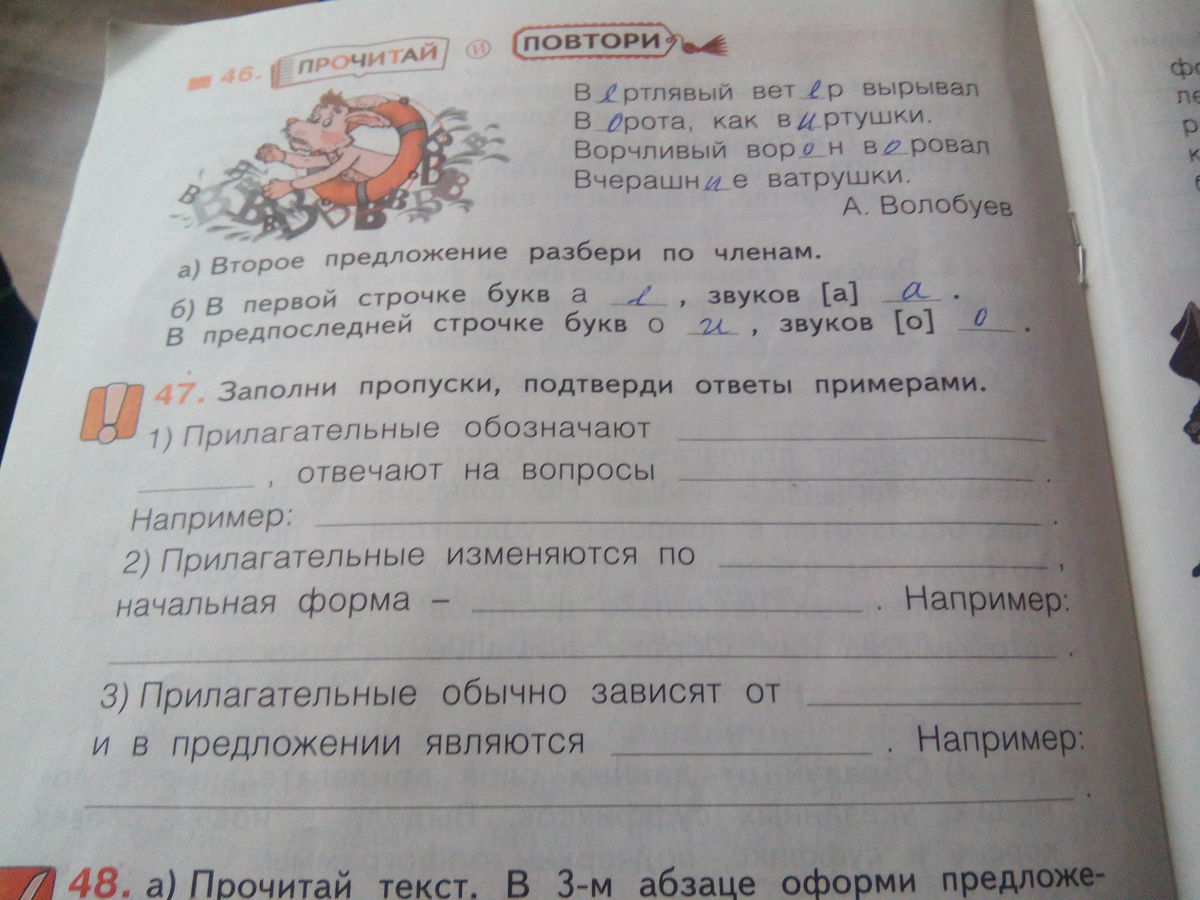 46. ПРОЧИТАЙ И ПОВТОРИ
Вертлявый ветер вырывал
Ворота, как виртушки.
Ворчливый ворон воровал
Вчерашние ватрушки.
А. Волобуев
а) Второе предложение разбери по членам.
б) В первой строчке букв а е , звуков [а] а .
В предпоследней строчке букв о и , звуков [о] о .
47. Заполни пропуски, подтверди ответы примерами.
1) Прилагательные обозначают ____
____ , отвечают на вопросы ____ .
Например: ____ .
2) Прилагательные изменяются по ____ ,
начальная форма – ____ . Например:
____ .
3) Прилагательные обычно зависят от ____
и в предложении являются ____ . Например:
____ .
48. а) Прочитай текст. В 3-м абзаце оформи предложе-